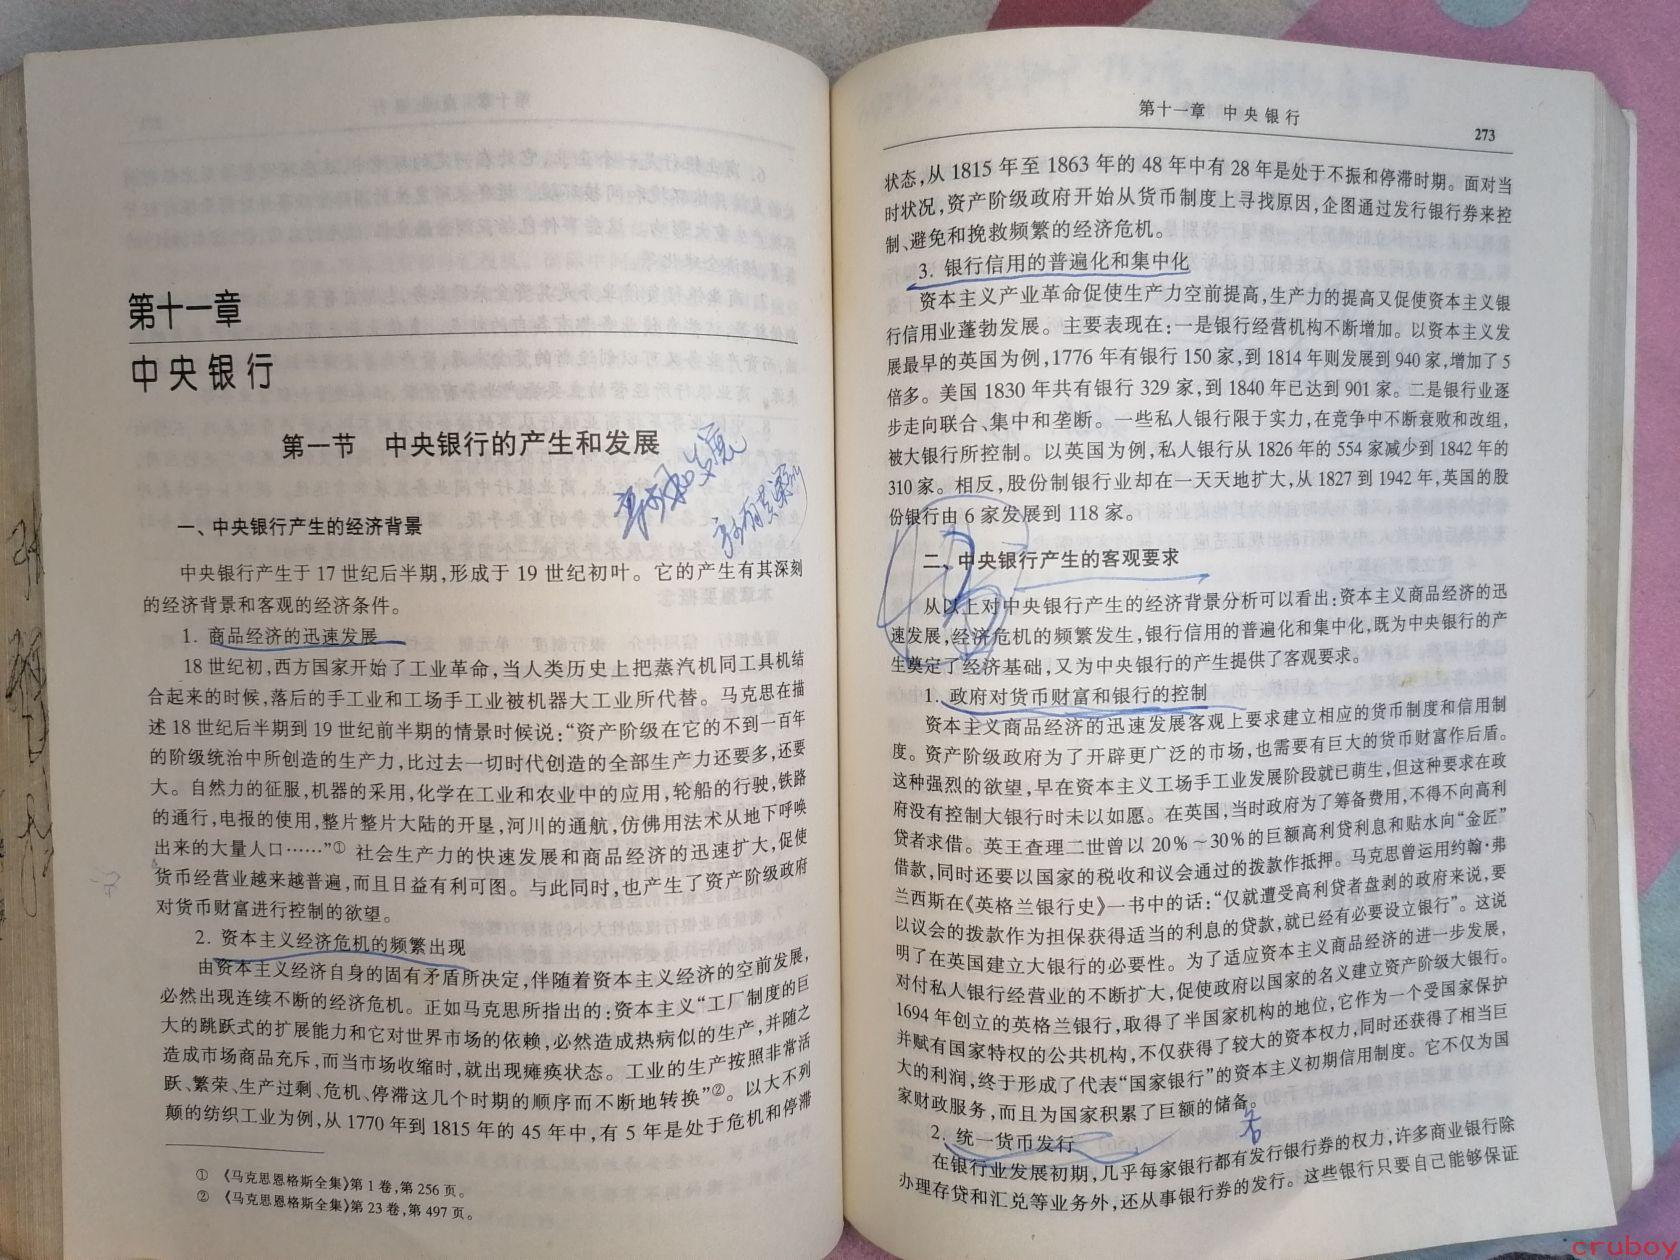 第十一章
中央银行
第一节 中央银行的产生和发展
一、中央银行产生的经济背景
中央银行产生于 17 世纪后半期,形成于 19 世纪初叶。它的产生有其深刻
的经济背景和客观的经济条件。
1. 商品经济的迅速发展
18 世纪初,西方国家开始了工业革命,当人类历史上把蒸汽机同工具机结
合起来的时候,落后的手工业和工场手工业被机器大工业所代替。马克思在描
述 18 世纪后半期到 19 世纪前半期的情景时候说:“资产阶级在它的不到一百年
的阶级统治中所创造的生产力,比过去一切时代创造的全部生产力还要多,还要
大。自然力的征服,机器的采用,化学在工业和农业中的应用,轮船的行驶,铁路
的通行,电报的使用,整片整片大陆的开垦,河川的通航,仿佛用法术从地下呼唤
出来的大量人口……”① 社会生产力的快速发展和商品经济的迅速扩大,促使
货币经营业越来越普遍,而且日益有利可图。与此同时,也产生了资产阶级政府
对货币财富进行控制的欲望。
2. 资本主义经济危机的频繁出现
由资本主义经济自身的固有矛盾所决定,伴随着资本主义经济的空前发展,
必然出现连续不断的经济危机。正如马克思所指出的:资本主义“工厂制度的巨
大的跳跃式的扩展能力和它对世界市场的依赖,必然造成热病似的生产,并随之
造成市场商品充斥,而当市场收缩时,就出现瘫痪状态。工业的生产按照非常活
跃、繁荣、生产过剩、危机、停滞这几个时期的顺序而不断地转换”②。以大不列
颠的纺织工业为例,从 1770 年到 1815 年的 45 年中,有 5 年是处于危机和停滞
① 《马克思恩格斯全集》第 1 卷,第 256 页。
② 《马克思恩格斯全集》第 23 卷,第 497 页。
第十一章 中央银行
273
状态,从 1815 年至 1863 年的 48 年中有 28 年是处于不振和停滞时期。面对当
时状况,资产阶级政府开始从货币制度上寻找原因,企图通过发行银行券来控
制、避免和挽救频繁的经济危机。
3. 银行信用的普遍化和集中化
资本主义产业革命促使生产力空前提高,生产力的提高又促使资本主义银
行信用业蓬勃发展。主要表现在:一是银行经营机构不断增加。以资本主义发
展最早的英国为例,1776 年有银行 150 家,到 1814 年则发展到 940 家,增加了 5
倍多。美国 1830 年共有银行 329 家,到 1840 年已达到 901 家。二是银行业逐
步走向联合、集中和垄断。一些私人银行限于实力,在竞争中不断衰败和改组,
被大银行所控制。以英国为例,私人银行从 1826 年的 554 家减少到 1842 年的
310 家。相反,股份制银行业却在一天天地扩大,从 1827 到 1942 年,英国的股
份银行由 6 家发展到 118 家。
二、中央银行产生的客观要求
从以上对中央银行产生的经济背景分析可以看出:资本主义商品经济的迅
速发展,经济危机的频繁发生,银行信用的普遍化和集中化,既为中央银行的产
生奠定了经济基础,又为中央银行的产生提供了客观要求。
1. 政府对货币财富和银行的控制
资本主义商品经济的迅速发展客观上要求建立相应的货币制度和信用制
度。资产阶级政府为了开辟更广泛的市场,也需要有巨大的货币财富作后盾。
这种强烈的欲望,早在资本主义工场手工业发展阶段就已萌生,但这种要求在政
府没有控制大银行时未以如愿。在英国,当时政府为了筹备费用,不得不向高利
贷者求借。英王查理二世曾以 20%~30%的巨额高利贷利息和贴水向“金匠”
借款,同时还要以国家的税收和议会通过的拨款作抵押。马克思曾运用约翰·弗
兰西斯在《英格兰银行史》一书中的话:“仅就遭受高利贷者盘剥的政府来说,要
以议会的拨款作为担保获得适当的利息的贷款,就已经有必要设立银行”。这说
明了在英国建立大银行的必要性。为了适应资本主义商品经济的进一步发展,
对付私人银行经营业的不断扩大,促使政府以国家的名义建立资产阶级大银行。
1694 年创立的英格兰银行,取得了半国家机构的地位,它作为一个受国家保护
并赋有国家特权的公共机构,不仅获得了较大的资本权力,同时还获得了相当巨
大的利润,终于形成了代表“国家银行”的资本主义初期信用制度。它不仅为国
家财政服务,而且为国家积累了巨额的储备。
2. 统一货币发行
在银行业发展初期,几乎每家银行都有发行银行券的权力,许多商业银行除
办理存贷和汇兑等业务外,还从事银行券的发行。这些银行只要自己能够保证
cruboy